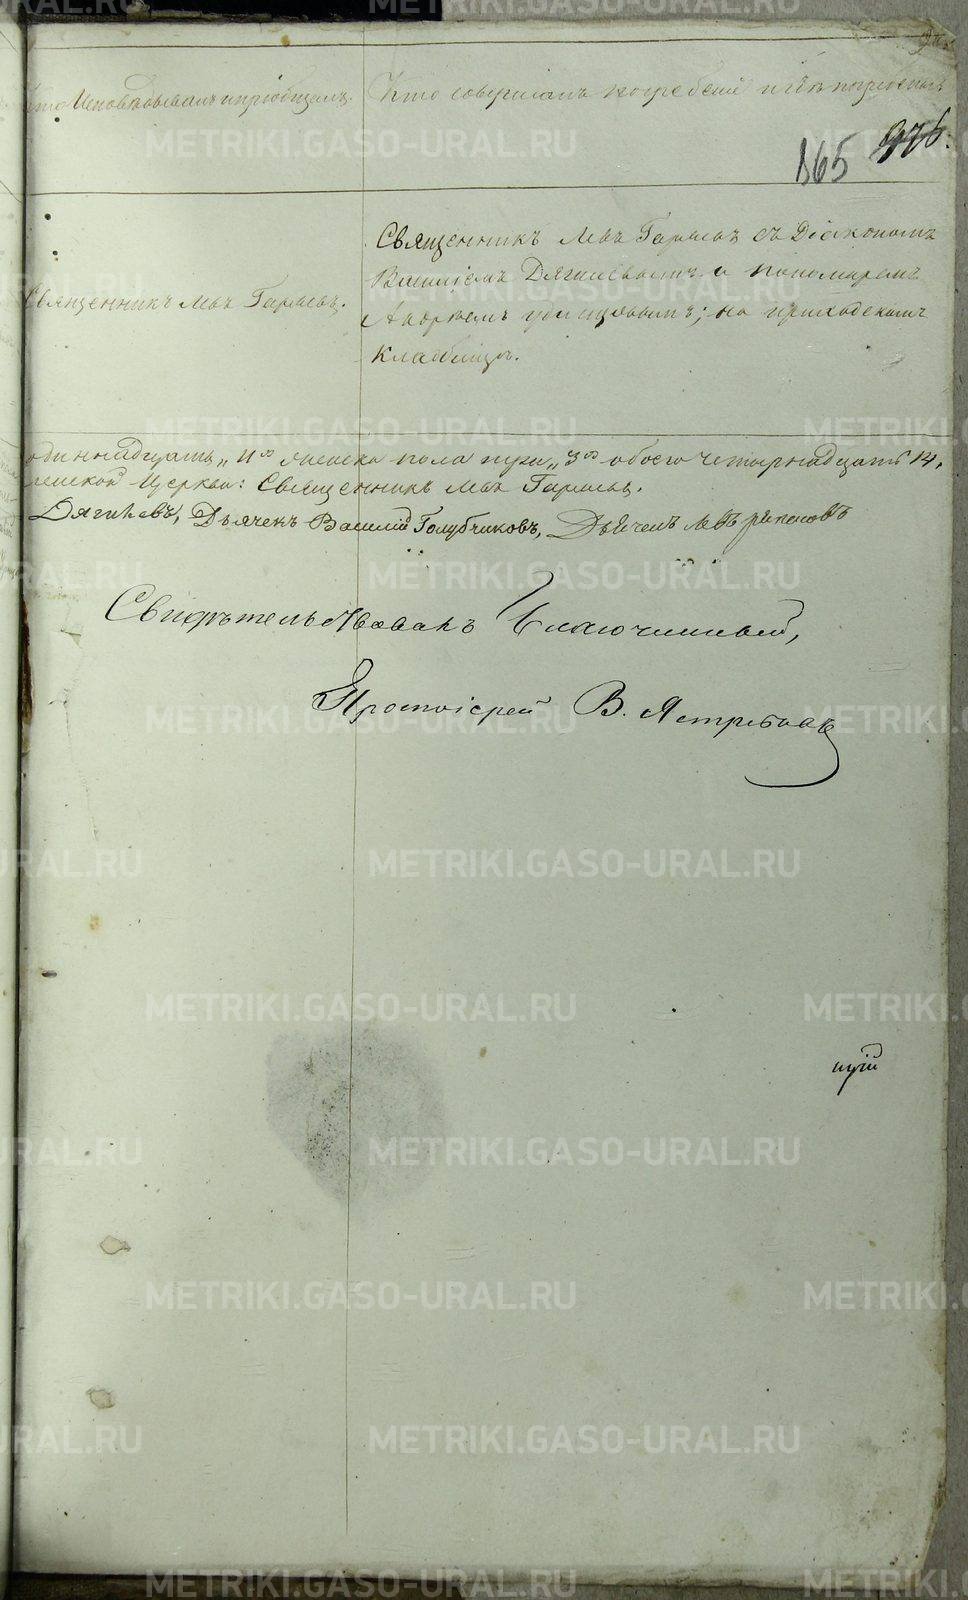 Кто Исповѣдывалъ и пріобщалъ.
Кто совершалъ погребеніе и гдѣ погребены
165 976.
Священникъ Левъ Гаряевъ.
Священникъ Левъ Гаряевъ съ Діакономъ
Василіемъ Дягилевымъ и пономаремъ
на приходскомъ
кладбищѣ.
одинадцать „ 11ть женска пола три „ 3 обоего четырнадцать 14.
Церкви: Священникъ Левъ Гаряевъ.
Дягилевъ, Дьячекъ Василій Голубчиковъ, Дьячекъ Левъ
Свидѣтельствовалъ Благочинный,
Протоіерей В. Ястребовъ
щій
METRIKI.GASO-URAL.RU